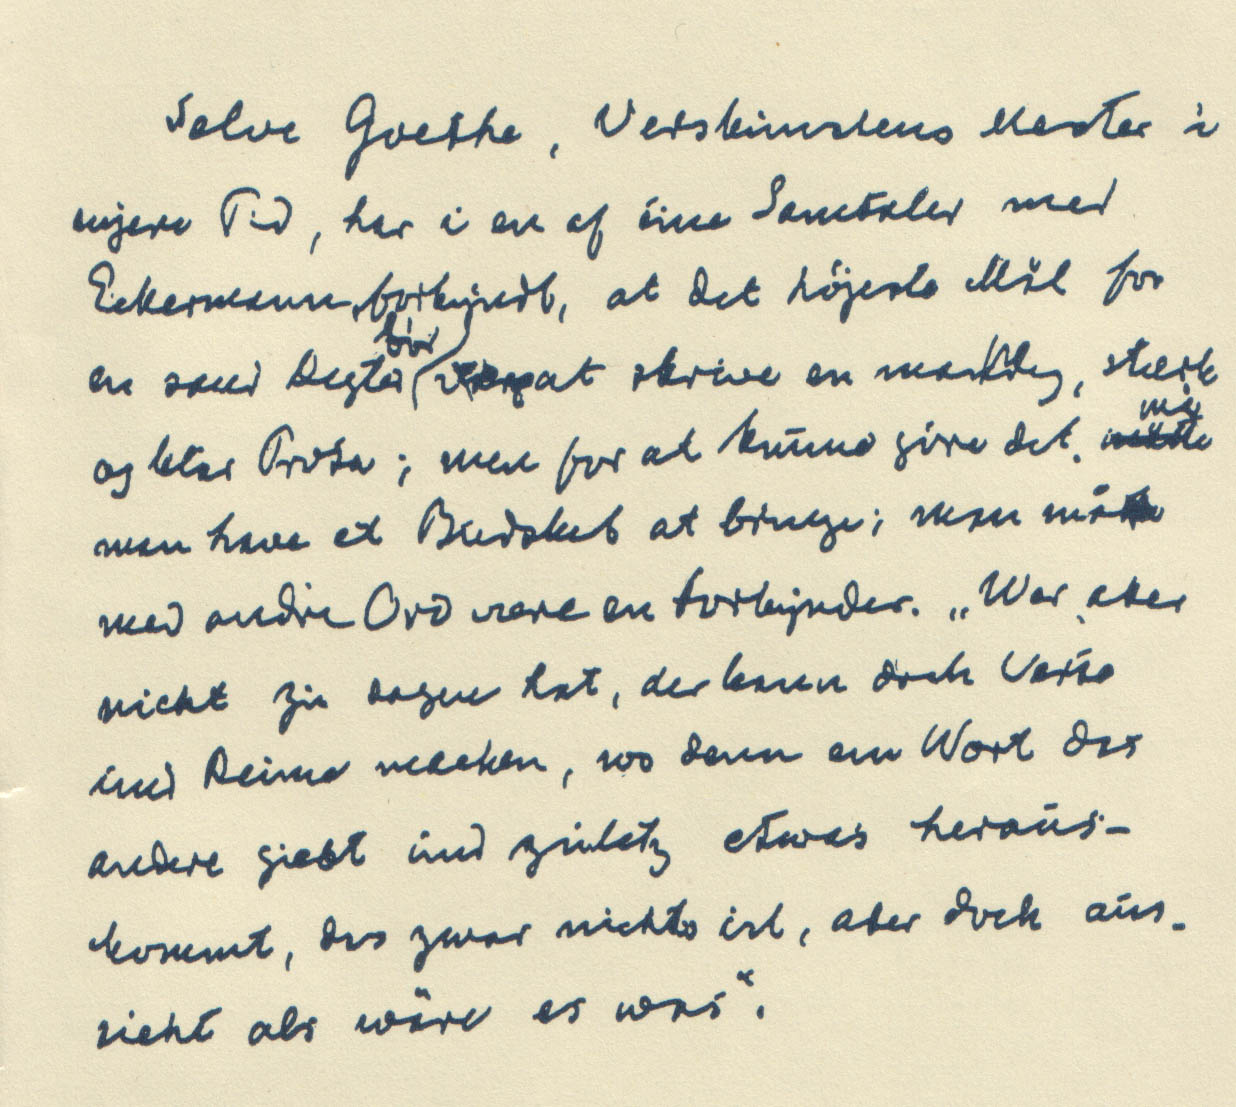 Selve Goethe, Verskunstens Mester i
nyere Tid, har i en af sine Samtaler med
Eckermann forkyndt, at det højeste Mål for
en sand Degter bör at skrive en mandig, stærk
og klar Prosa; men for at kunne göre det, må
man have et Budskab at bringe; man må
med andre Ord være en Forkynder. „Wer aber
nicht zu sagen hat, der kann doch Verse
und Reime machen, wo denn ein Wort das
andere giebt und zuletz etwas heraus-
kommt, das zwar nichts ist, aber doch aus-
sieht als wäre es was“.